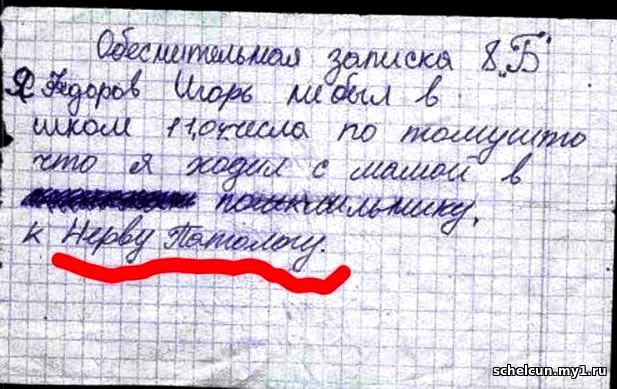 Обеснительная записка 8 „Б"
Я Федоров Игорь небыл в
школ 11,04числа по томушто
что я ходил с мамой в
к Нерву Патологу.
schelcun.my1.ru